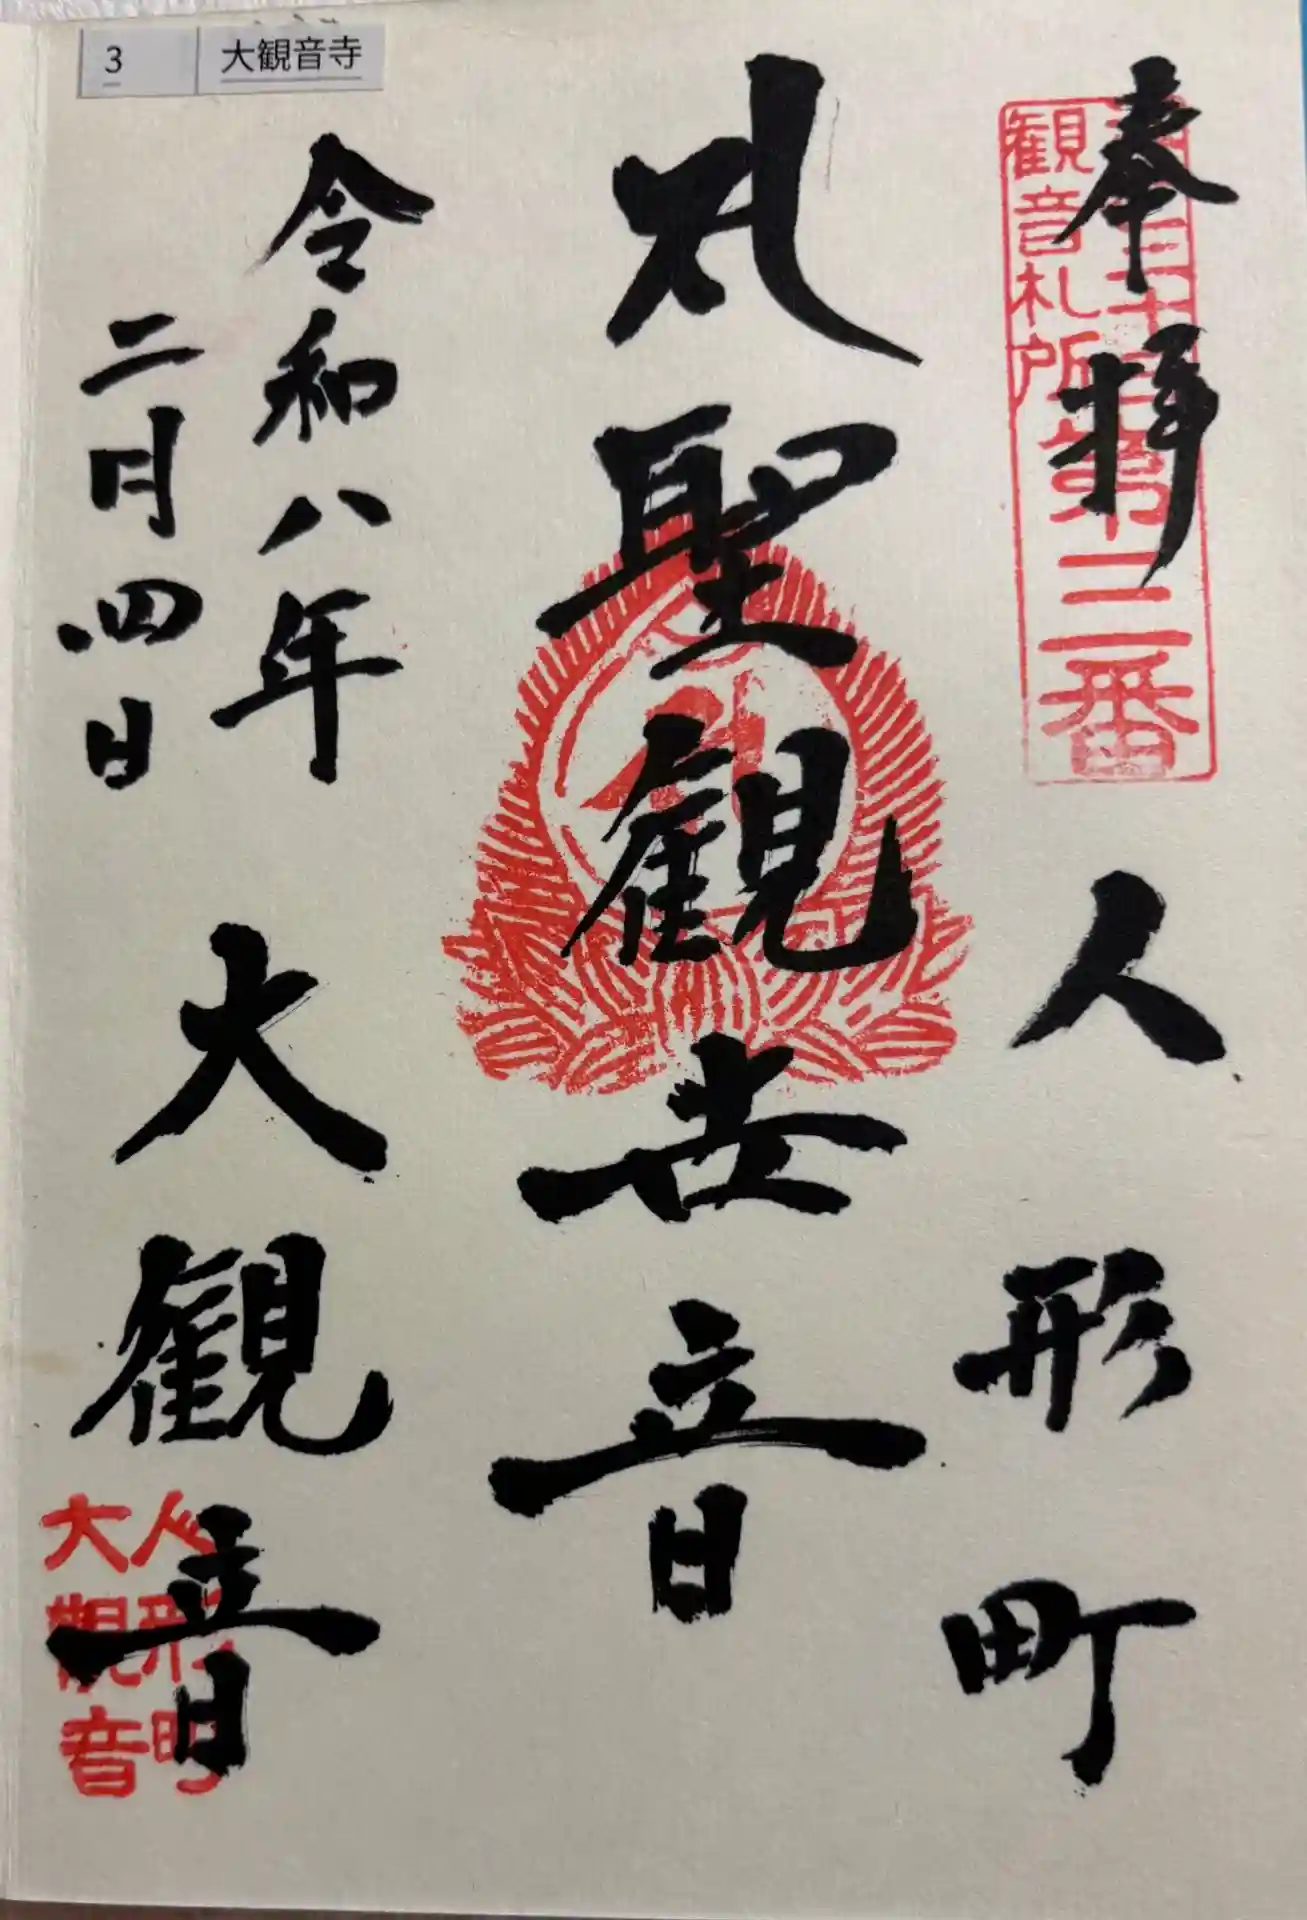 3
大観音寺
奉拝
人形町
聖観世音
令和八年
二月四日
大観音
観音札所第三番
人形町
大観音